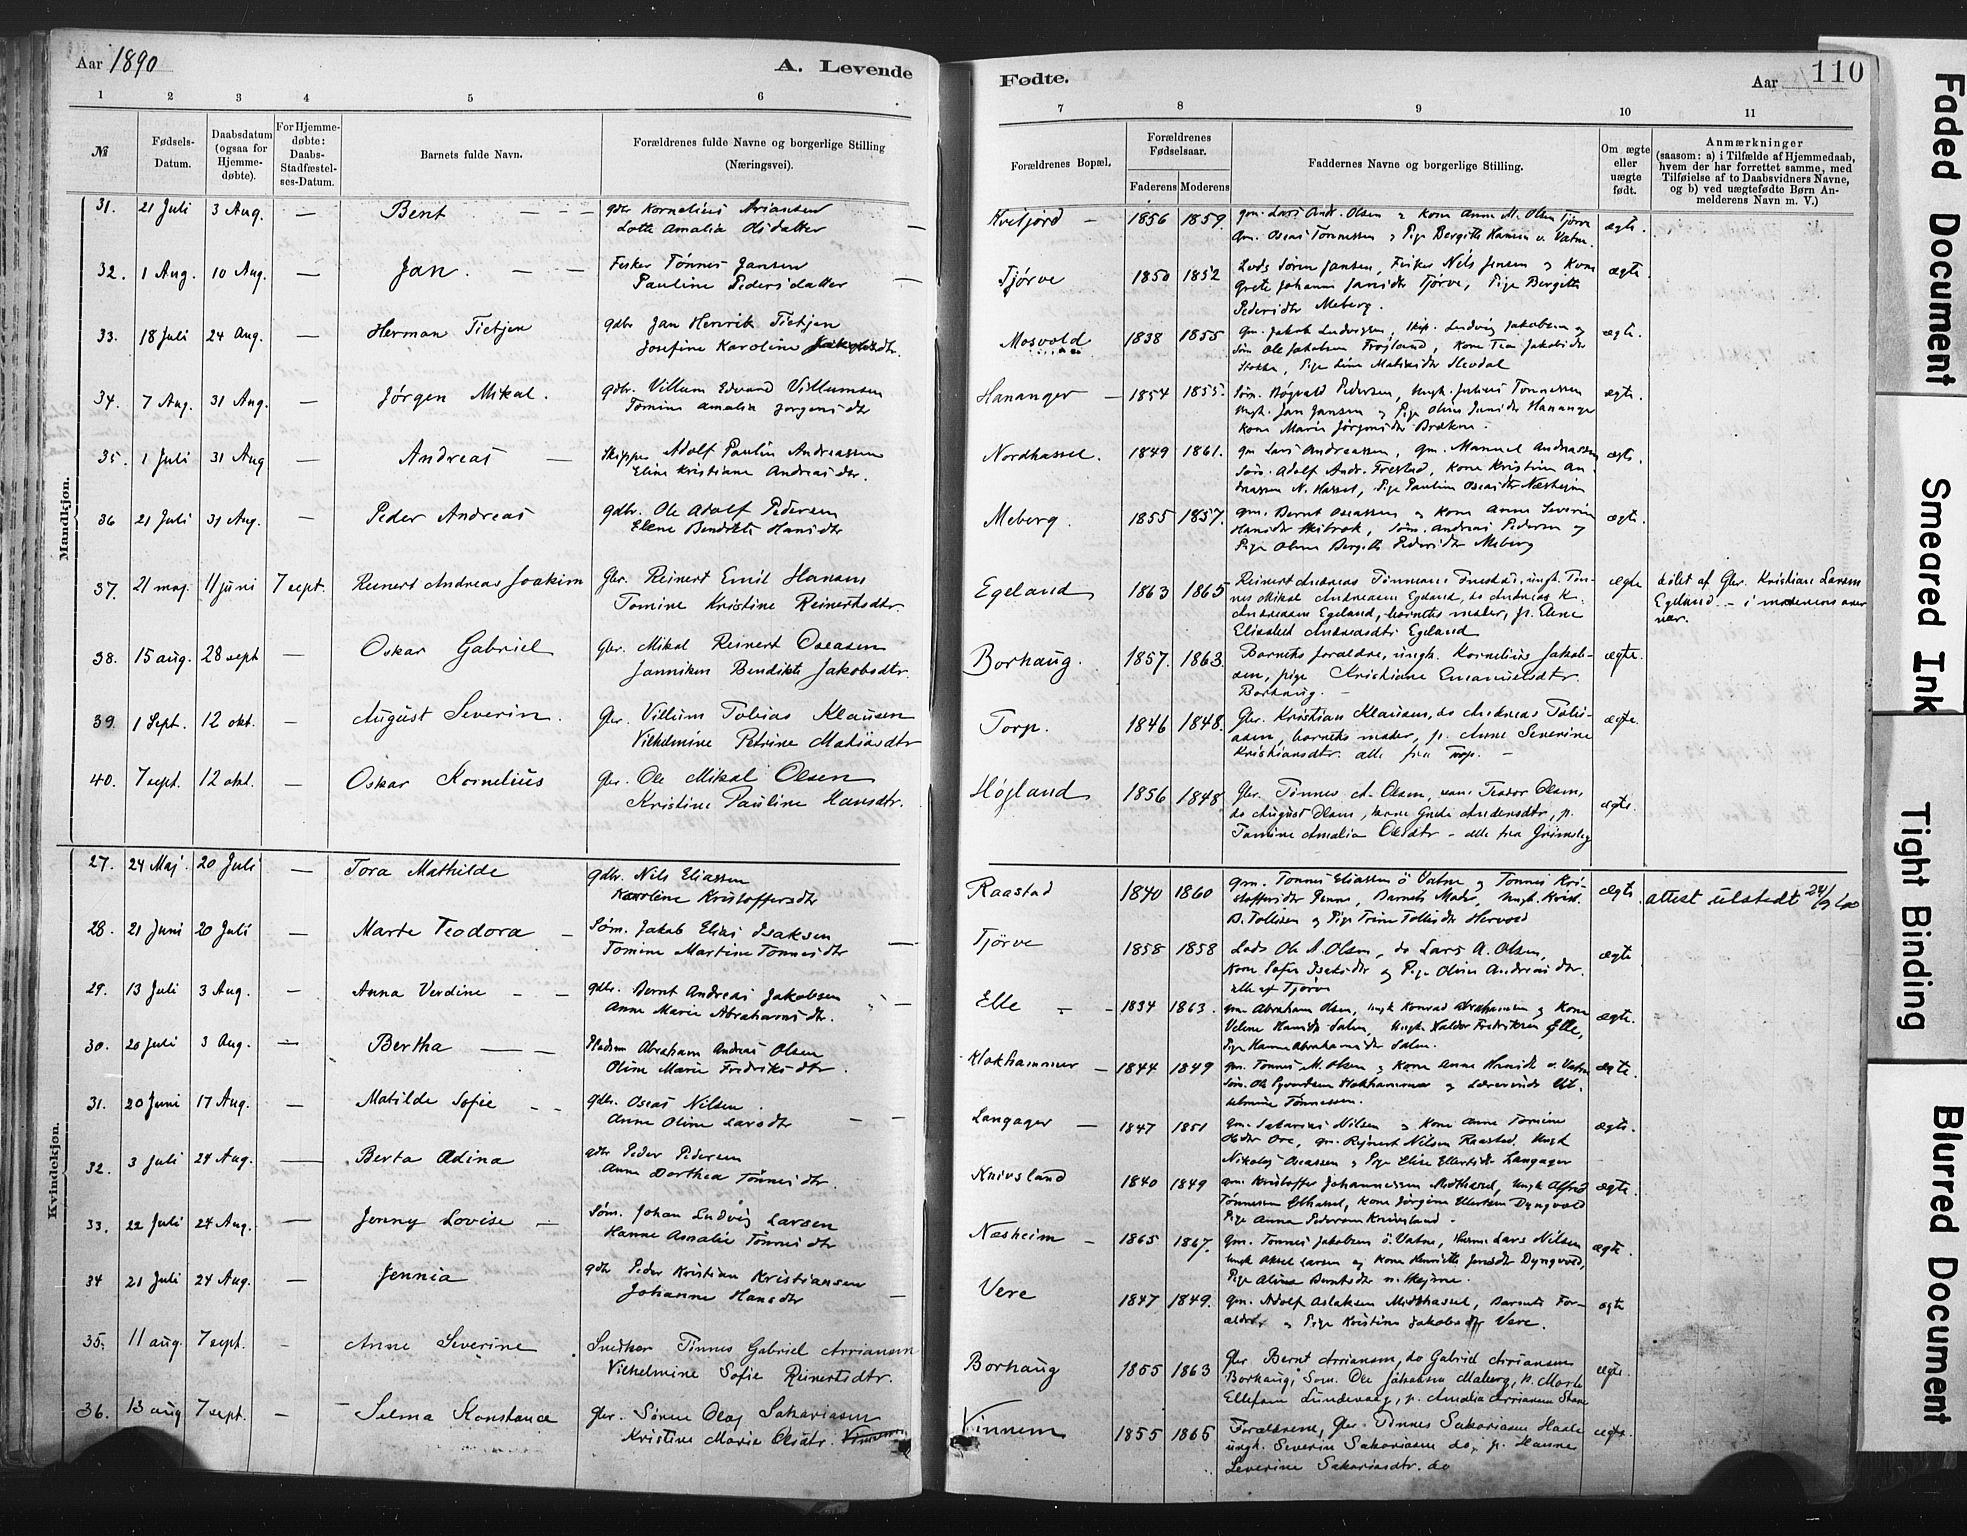 Aar 1890
A. Levende
1 2 3 4 5 6
№
Fødsels-Datum.
Daabsdatum (ogsaa for Hjemme-døbte).
For Hjemme-døbte: Daabs-Stadfæstel-ses-Datum.
Barnets fulde Navn.
Forældrenes fulde Navne og borgerlige Stilling (Næringsvei).
Mandkjøn.
31. 21 Juli 3 Aug. — Bent — gdbr Kornelius Ariansen
Lotte Amalie Olsdatter
32. 1 Aug. 10 Aug. — Jan. — Fisker Tønnes Jansen
Pauline Pedersdatter
33. 18 Juli 24 Aug. — Herman Tietjen gdbr Jan Henrik Tietjen
Josefine Karoline Jakobsdtr.
34. 7 Aug. 31 Aug. — Jørgen Mikal. gdbr. Villum Edvard Villumsen
Tomine Amalia Jørgensdtr
35. 1 Juli 31 Aug — Andreas — Skipper Adolf Paulin Andreassen
Eline Kristiane Andreasdtr.
36 21 Juli 31 Aug. — Peder Andreas gdbr. Ole Adolf Pedersen
Elene Bendikte Hansdtr
37. 21 maj. 11 juni 7 sept. Reinert Andreas Joakim Gbr. Reinert Emil Hansen
Tomine Kristine Reinertsdtr.
38. 15 aug. 28 sept — Oskar Gabriel Gbr. Mikal Reinert Oseasen
Janniken Bendikte Jakobsdtr.
39. 1 Sept. 12 okt. — August Severin. Gbr. Villum Tobias Klausen
Vilhelmine Petrine Matiasdtr
40. 7 sept. 12 okt. — Oskar Kornelius Gbr. Ole Mikal Olsen
Kristine Pauline Hansdtr.
Kvindekjøn.
27. 24 Maj. 20 Juli — Tora Mathilde gdbr. Nils Eliassen
Karolene Kristoffersdtr
28. 21 Juni 20 Juli — Marte Teodora — Søm. Jakob Elias Isaksen
Tomine Martine Tønnesdtr
29. 13 Juli 3 Aug. — Anna Verdine — gdbr. Bernt Andreas Jakobsen
Anne Marie Abrahamsdtr.
30. 20 Juli 3 Aug. — Bertha — Abraham Andreas Olsen
Oline Marie Fredriksdtr.
31. 20 Juni 17 Aug. — Matilde Sofie — gdbr. Oseas Nilsen
Anne Oline Larsdtr
32. 3 Juli 24 Aug. — Berta Adina gdbr Peder Pedersen
Anne Dorthea Tønnesdtr.
33. 22 Juli 24 Aug. — Jenny Lovise — Søm. Johan Ludvig Larsen
Hanne Amalie Tønnesdtr
34 21 Juli 24 Aug. — Jennia gdbr Peder Kristian Kristiansen
Johanne Hansdtr
35. 11 aug. 7 sept. — Anne Severine Snedker Tønnes Gabriel Arriansen
Vilhelmine Sofie Reinertsdtr.
36. 13 aug 7 sept. — Selma Konstance Gbr. Søren Olaj Sakariasen
Kristine Marie Olsdtr.
Fødte.
Aar
110
7 8 9 10 11
Forældrenes Bopæl.
Forældrenes Fødselsaar.
Faderens Moderens
Faddernes Navne og borgerlige Stilling.
Om ægte eller uægte født.
Anmærkninger
(saasom: a) i Tilfælde af Hjemmedaab,
hvem der har forrettet samme, med
Tilføielse af to Daabsvidners Navne,
og b) ved uægtefødte Børn An-
melderens Navn m. V.)
Kvifjord — 1856 1859. gm. Lars Andr. Olsen & Kone Anne M. Olsen Tjørve ægte.
gm. Oseas Tønnessen & Pige Bergitte Hansen v. Vatne.
Tjørve 1850 1852 Lods Søren Jansen, Fisker Nils Jensen og Kone ægte.
Grete Johanne Jansdtr Tjørve, Pige Bergitte
Pedersdtr Meberg.
Mosvold 1838 1855 gm. Jakob Ludvigsen, Skip. Ludvig Jakobsen og ægte.
Søm Ole Jakobsen Frøjland, Kone Tea Jakobsdtr
Stokke, Pige Line Matiasdtr
Hananger — 1854 1855. Søm. Bøgvald Pedersen, Ungk. Julius Tønnessen ægte.
Ungk. Jan Jansen & Pige Oline Hananger
Kone Marie Jørgensdtr Brækne.
Nordhassel. 1849 1861. gm Lars Andreassen, gm. Manuel Andreassen ægte.
Søm. Adolf Andr. Frestad, Kone Kristine An-
dreassen N. Hassel, Pige Pauline Oseasdtr Næsheim
Meberg. 1855 1857. gm. Bernt Oseassen og Kone Anne Severine ægte.
Hansdtr Skibrok, Søm. Andreas Pedersen og
Pige Oline Bergitte Pedersdtr Meberg
Egeland 1863 1865 Reinert Andreas Tønnesen, ungk. Tøn- ægte
nes Mikal Andreasen Egeland, do Andreas K.
Andreasen Egeland, barnets moder, p. Elene
Elisabet Andreasdtr Egeland
døbt af Gbr. Kristian Larsen
Egeland. — i moderens over
vær.
Borhaug. 1857. 1863. Barnets forældre, ungk. Kornelius Jakob- ægte.
sen, pige Kristiane Emanuelsdtr
Borhaug. —
Torp. 1846 1848. Gbr. Kristian Klausen, do Andreas Tobi- ægte.
asen, barnets moder, p. Anne Severine
Kristiansdtr. alle fra Torp. —
Højland 1856 1848 Gbr. Tønnes A. Olsen, søm. Teodor Olsen, ægte.
do August Olsen, kone Grete Andersdtr, p.
Tomine Amalia Olsdtr — alle fra Grimsby
Raastad 1840 1860 gm. Tønnes Eliassen ö Vatne & Tønnes Kri- ægte.
stoffersdtr Penne, Barnets Moder, Ungk. Krist.
B. Tollisen og Pige Trine Tollisdtr Hervold
attest utstedt 24/9 40
Tjørve 1858 1858 Lods Ole A. Olsen, do Lars A. Olsen, ægte
Kone Sofie Isaksdtr og Pige Oline Andreasdtr.
alle af Tjørve
Elle — 1834 1863. gm Abraham Olsen, Ungk Konrad Abrahamsen og Kone ægte.
Velene Hansdtr Salen, Ungk. Haldor Fredriksen Elle,
Pige Hanne Abrahamsdtr Salen.
Klokhammer — 1844 1849 gm. Tønnes M. Olsen & Kone Anne v. Vatne ægte.
Søm. Ole Klokhammer og Lærerinde Vil-
helmine Tønnessen.
Langager — 1847 1851 gm. Sakarias Nilsen & Kone Anne Tomine ægte.
Olsdtr Ore, gm. Rejnert Nilsen Raastad. Ungk
Nikolaj Oseassen & Pige Elise Ellertsdtr Langager
Knivsland 1840 1849 gm. Kristoffer Johannessen Midthassel, Ungk Alfred ægte.
Tønnessen, Kone Jørgine Ellertsen Dyngvold
Pige Anna Pedersen Knivsland.
Næsheim — 1865 1867. gm. Tønnes Jakobsen ö. Vatne, Lars Nilsen ægte.
Ungk Aksel Larsen og Kone Henriette Jensdtr Dyngvold,
Pige Alina Berntsdtr n. Skejbrok.
Vere 1847 1849. gm. Adolf Aslaksen Midthassel, Barnets For- ægte
ældre & Pige Kristine Jakobsdtr Vere.
Borhaug 1855 1863 Gbr Bernt Arriansen, do Gabriel Arriansen ægte.
Borhaug, Søm. Ole Johansen Maberg, p. Marte
Ellefsen Lundevaag, p. Amalia Arriansen Stave
Vinnem 1855 1865 Forældrene, Gbr. Tønnes Sakariasen Haale ægte.
ungk. Severin Sakariasen do, p. Hanne
Severine Sakariasdtr. do
Faded Document
Smeared Ink
Tight Binding
Blurred Document